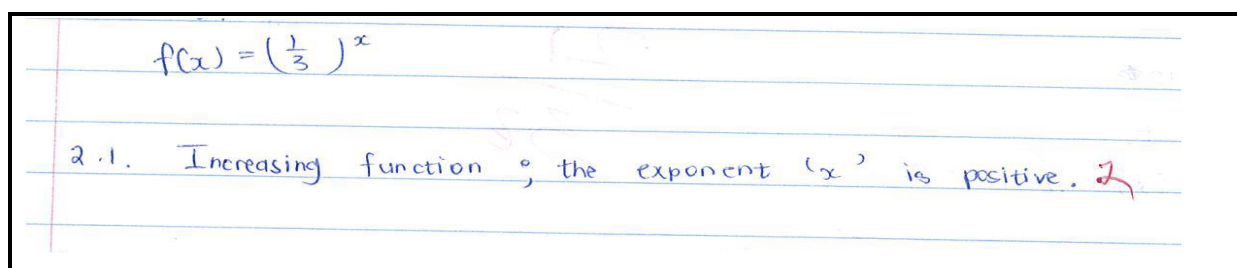 f(x) = (1/3)^x
2.1. Increasing function ; the exponent 'x' is positive.